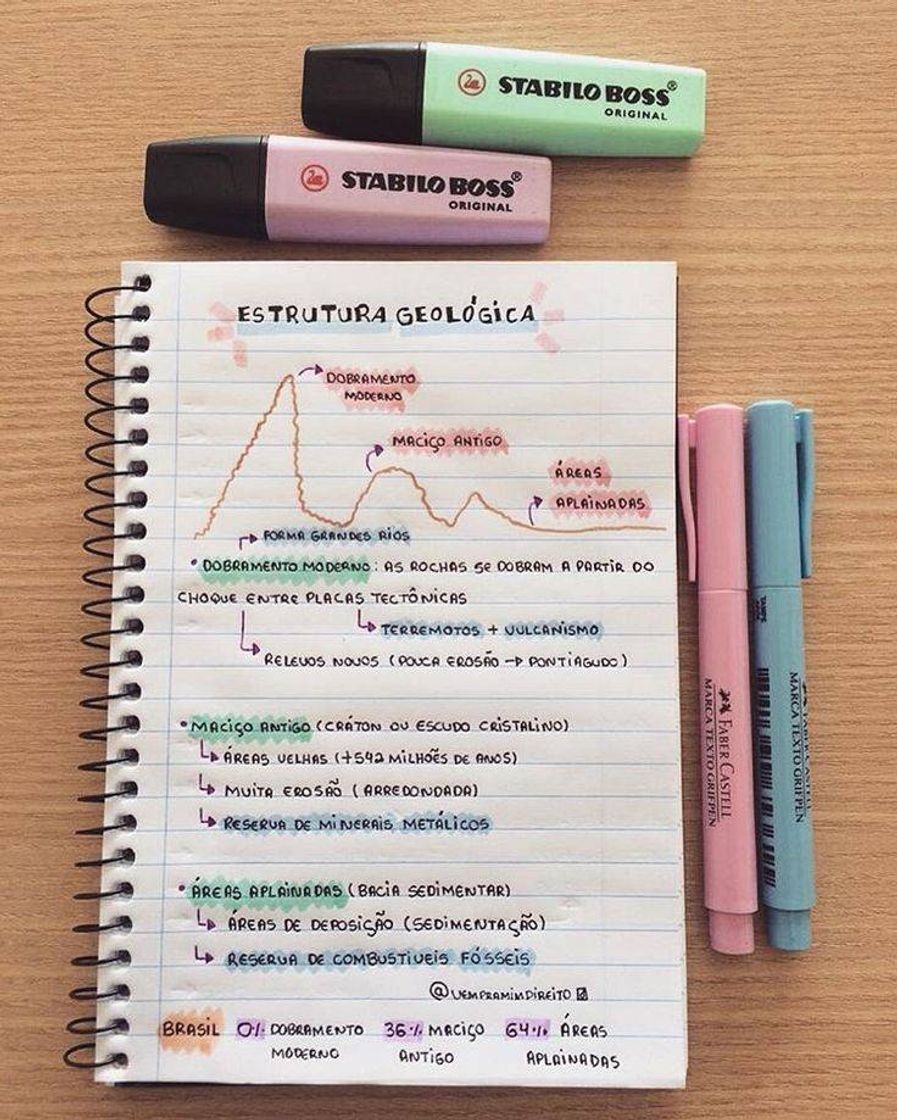 STABILO BOSS®
ORIGINAL
STABILO BOSS®
ORIGINAL
ESTRUTURA GEOLÓGICA
DOBRAMENTO
MODERNO
MACIÇO ANTIGO
ÁREAS
APLAINADAS
FORMA GRANDES RIOS
• DOBRAMENTO MODERNO: AS ROCHAS SE DOBRAM A PARTIR DO
CHOQUE ENTRE PLACAS TECTÔNICAS
TERREMOTOS + VULCANISMO
RELEVOS NOVOS (POUCA EROSÃO → PONTIAGUDO)
• MACIÇO ANTIGO (CRÁTON OU ESCUDO CRISTALINO)
ÁREAS VELHAS (+542 MILHÕES DE ANOS)
MUITA EROSÃO (ARREDONDADA)
RESERVA DE MINERAIS METÁLICOS
• ÁREAS APLAINADAS (BACIA SEDIMENTAR)
ÁREAS DE DEPOSIÇÃO (SEDIMENTAÇÃO)
RESERVA DE COMBUSTIVEIS FÓSSEIS
@VEMPRAMIMDIREITO
BRASIL 0% DOBRAMENTO MODERNO
36% MACIÇO ANTIGO
64% ÁREAS APLAINADAS
FABER CASTELL
MARCA TEXTO GRIFPEN
FABER CASTELL
MARCA TEXTO GRIFPEN